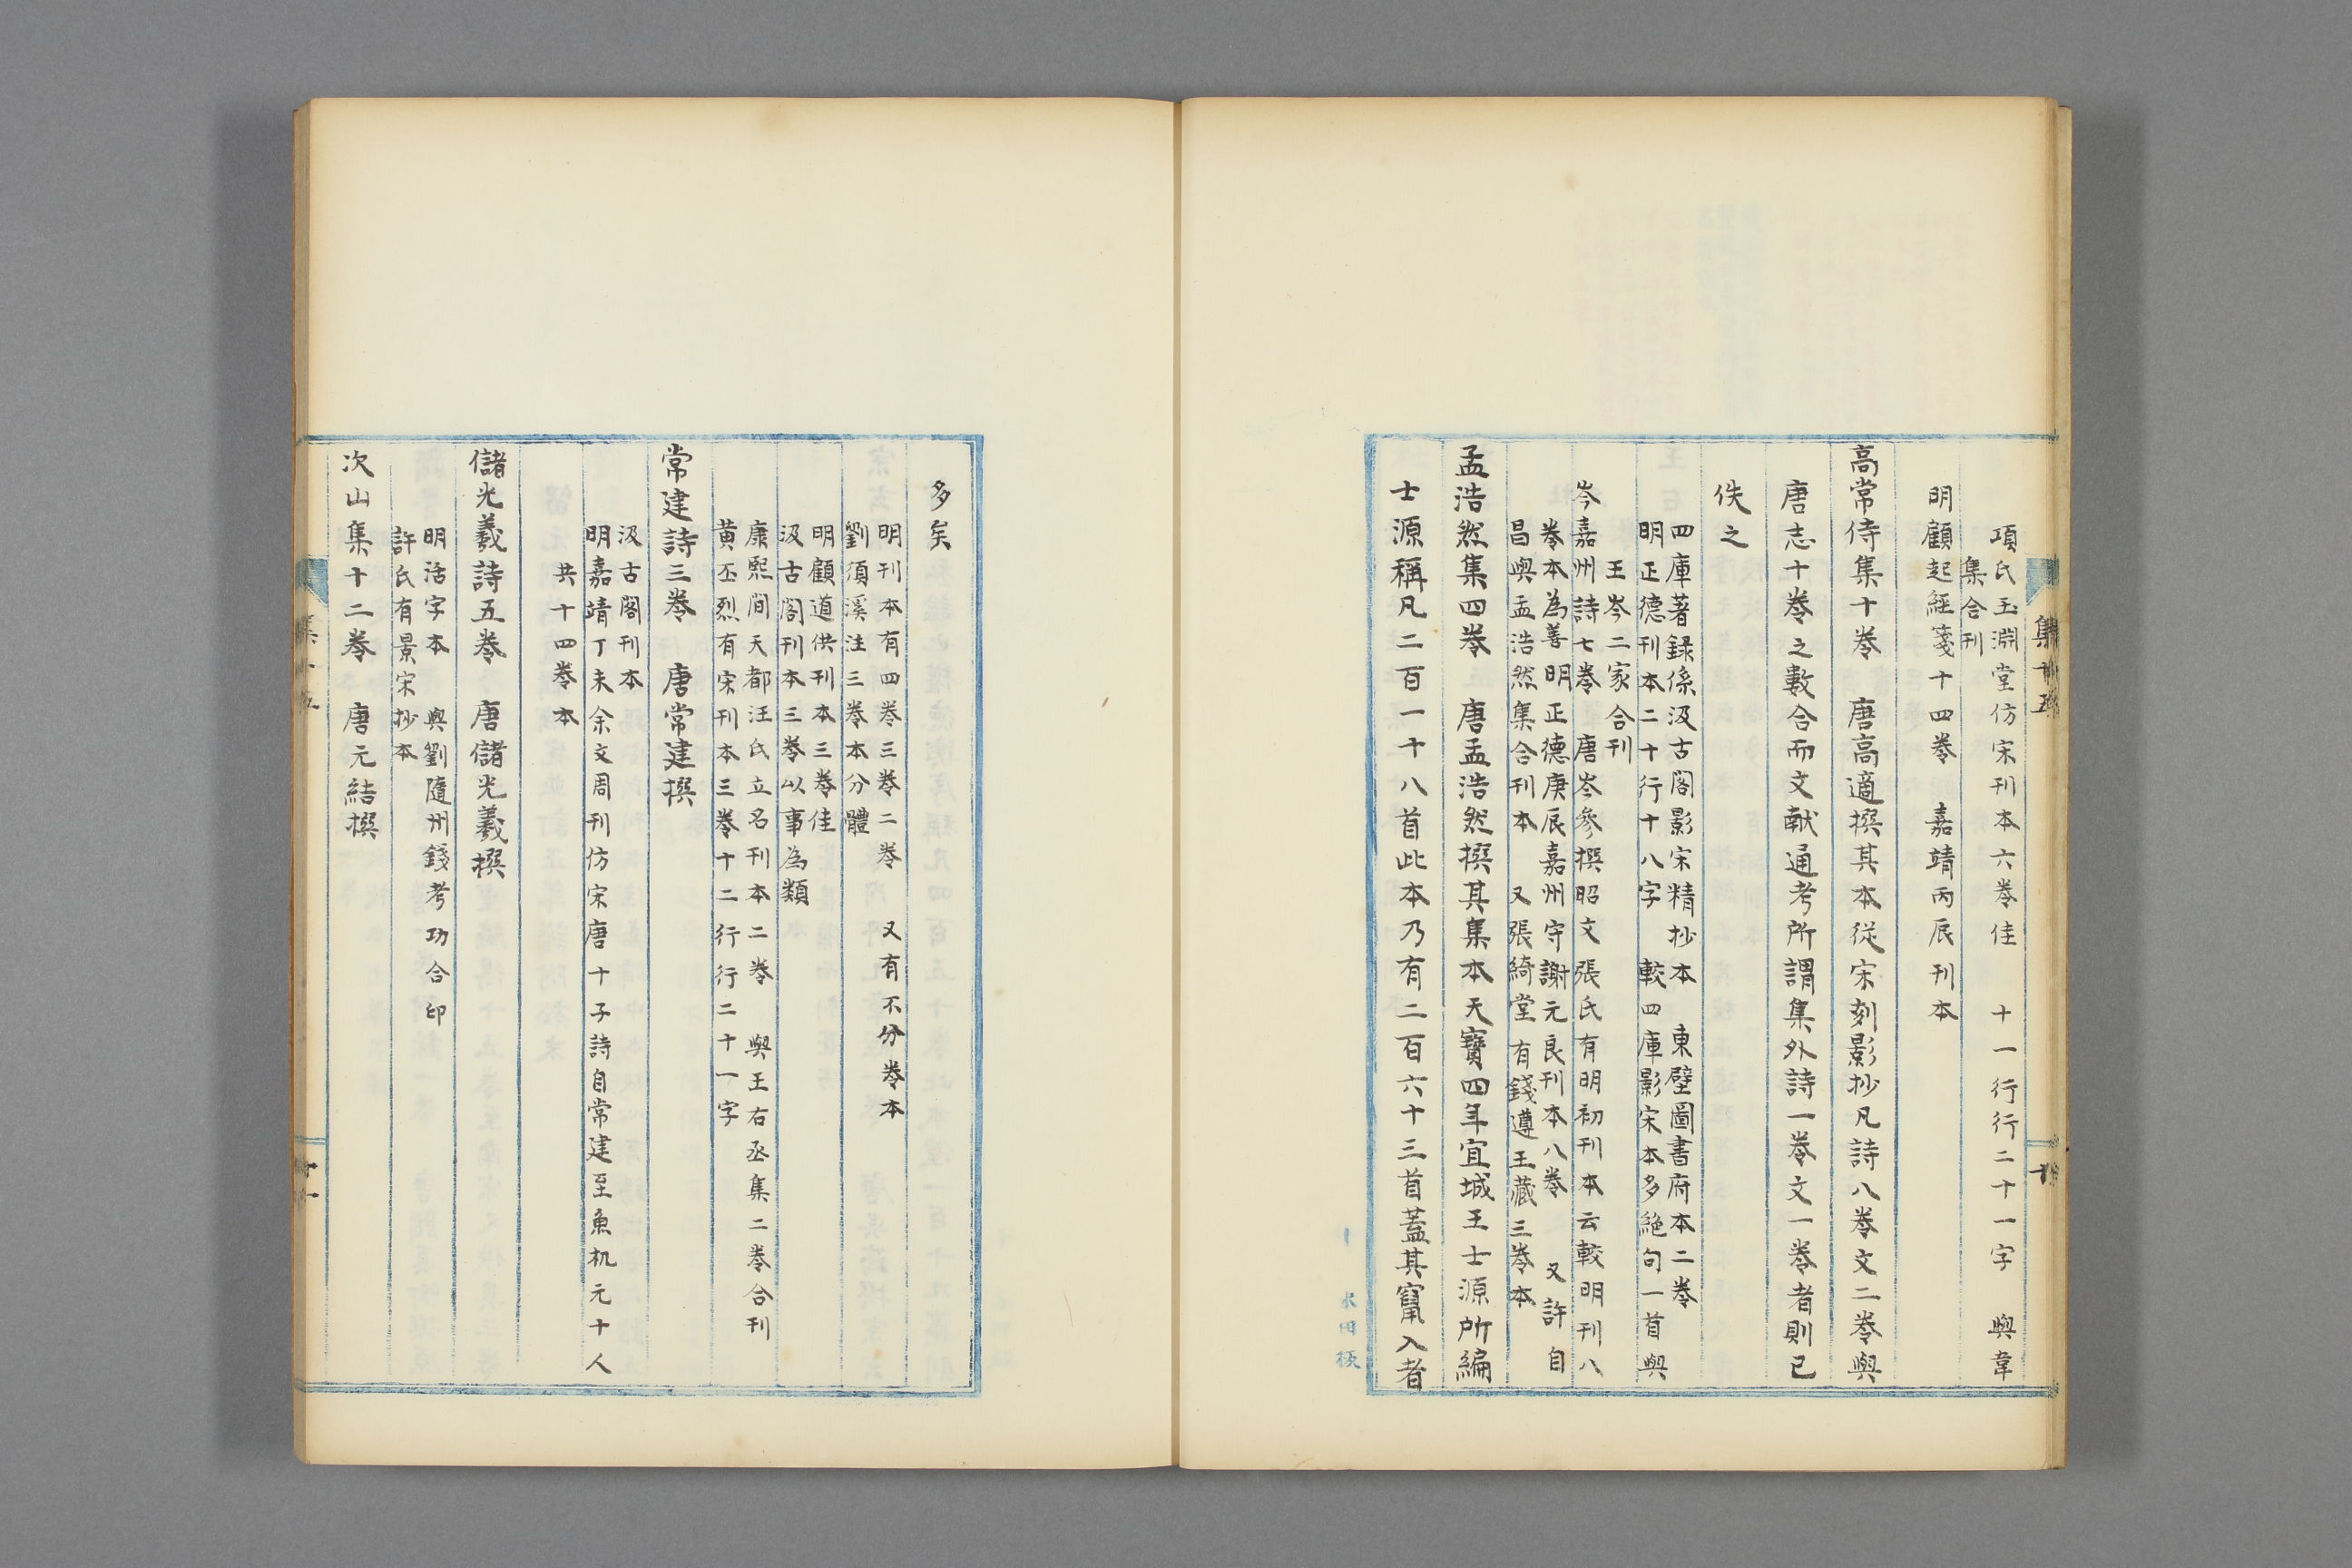 項氏玉淵堂仿宋刊本六卷佳　十一行行二十一字　與韋
集合刊
明顧起經箋十四卷　嘉靖丙辰刊本
高常侍集十卷　唐高適撰其本從宋刻影抄凡詩八卷文二卷與
唐志十卷之數合而文獻通考所謂集外詩一卷文一卷者則已
佚之
四庫著録係汲古閣影宋精抄本　東壁圖書府本二卷
明正德刊本二十行十八字　較四庫影宋本多絶句一首與
王岑二家合刊
岑嘉州詩七卷　唐岑參撰昭文張氏有明初刊本云較明刊八
卷本為善　明正德庚辰嘉州守謝元良刊本八卷　又許自
昌與孟浩然集合刊本　又張綺堂有錢遵王藏三卷本
孟浩然集四卷　唐孟浩然撰其集本天寶四年宜城王士源所編
士源稱凡二百一十八首此本乃有二百六十三首蓋其竄入者
集十五
多矣
明刊本有四卷三卷二卷　又有不分卷本
劉須溪注三卷本分體
明顧道洪刊本三卷佳
汲古閣刊本三卷以事為類
康熙間天都汪氏立名刊本二卷　與王右丞集二卷合刊
黃丕烈有宋刊本三卷十二行行二十一字
常建詩三卷　唐常建撰
汲古閣刊本
明嘉靖丁未余文周刊仿宋唐十子詩自常建至魚机元十人
共十四卷本
儲光羲詩五卷　唐儲光羲撰
明活字本　與劉隨州錢考功合印
許氏有景宋抄本
次山集十二卷　唐元結撰